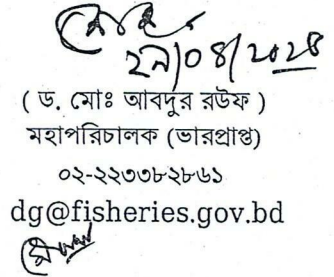 ২৯/০৪/২০২৫
( ড. মোঃ আবদুর রউফ )
মহাপরিচালক (ভারপ্রাপ্ত)
০২-২২৩৩৮২৮৬১
dg@fisheries.gov.bd